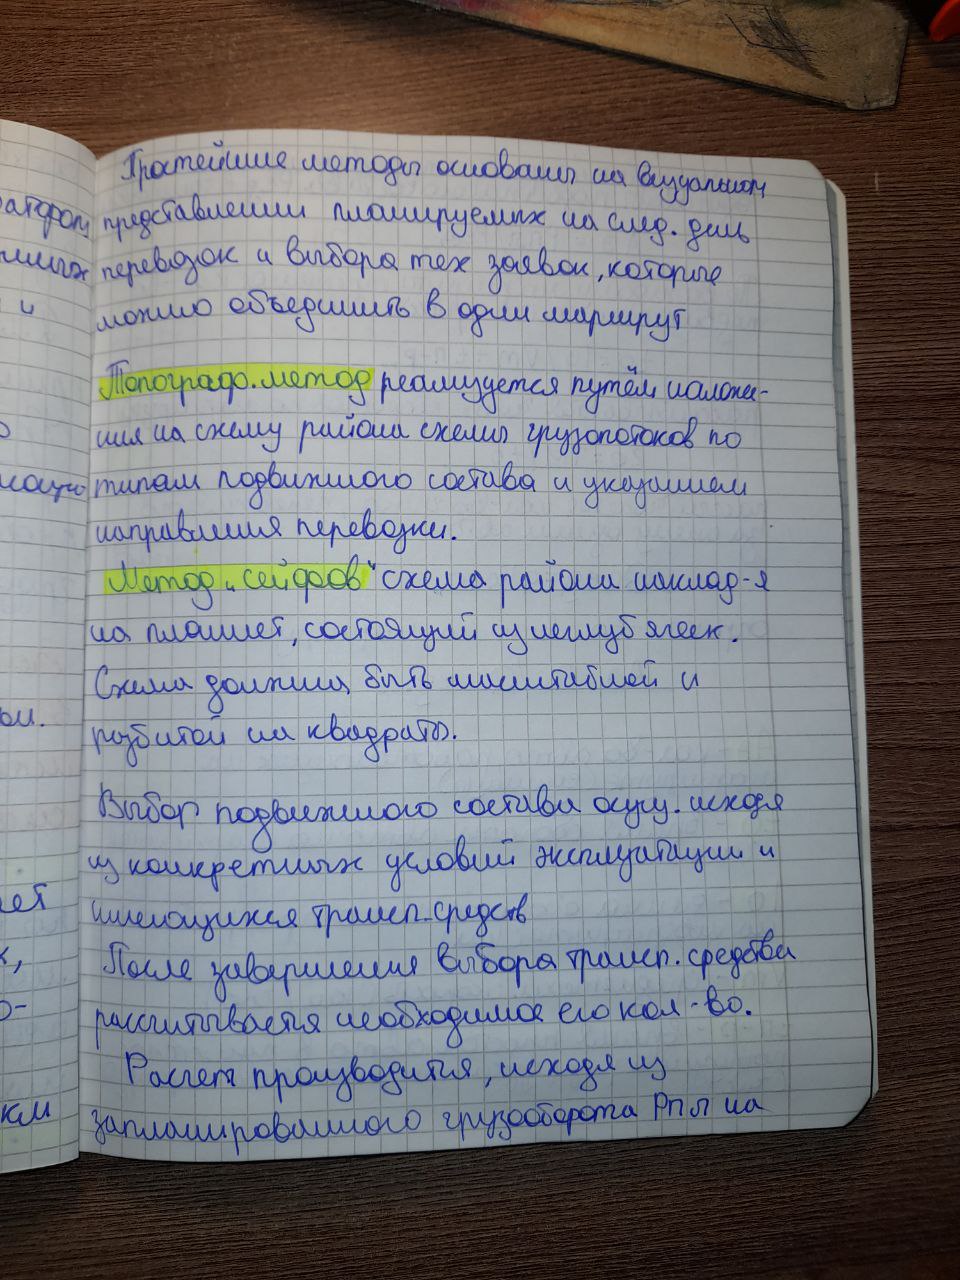 Простейшие методы основаны на визуальном
представлении планируемых на след. день
перевозок и выбора тех заявок, которые
можно объединить в один маршрут
Топограф. метод реализуется путём наложе-
ния на схему района схемы грузопотоков по
типам подвижного состава и указанием
направления перевозки.
Метод „сейфов" схема района наклад-я
на планшет, состоящий из неглуб ячеек.
Схема должна быть масштабной и
разбитой на квадраты.
Выбор подвижного состава осущ. исходя
из конкретных условий эксплуатации и
имеющихся трансп. средств
После завершения выбора трансп. средства
рассчитывается необходимое его кол-во.
Расчет производится, исходя из
запланированного грузооборота Рпл на